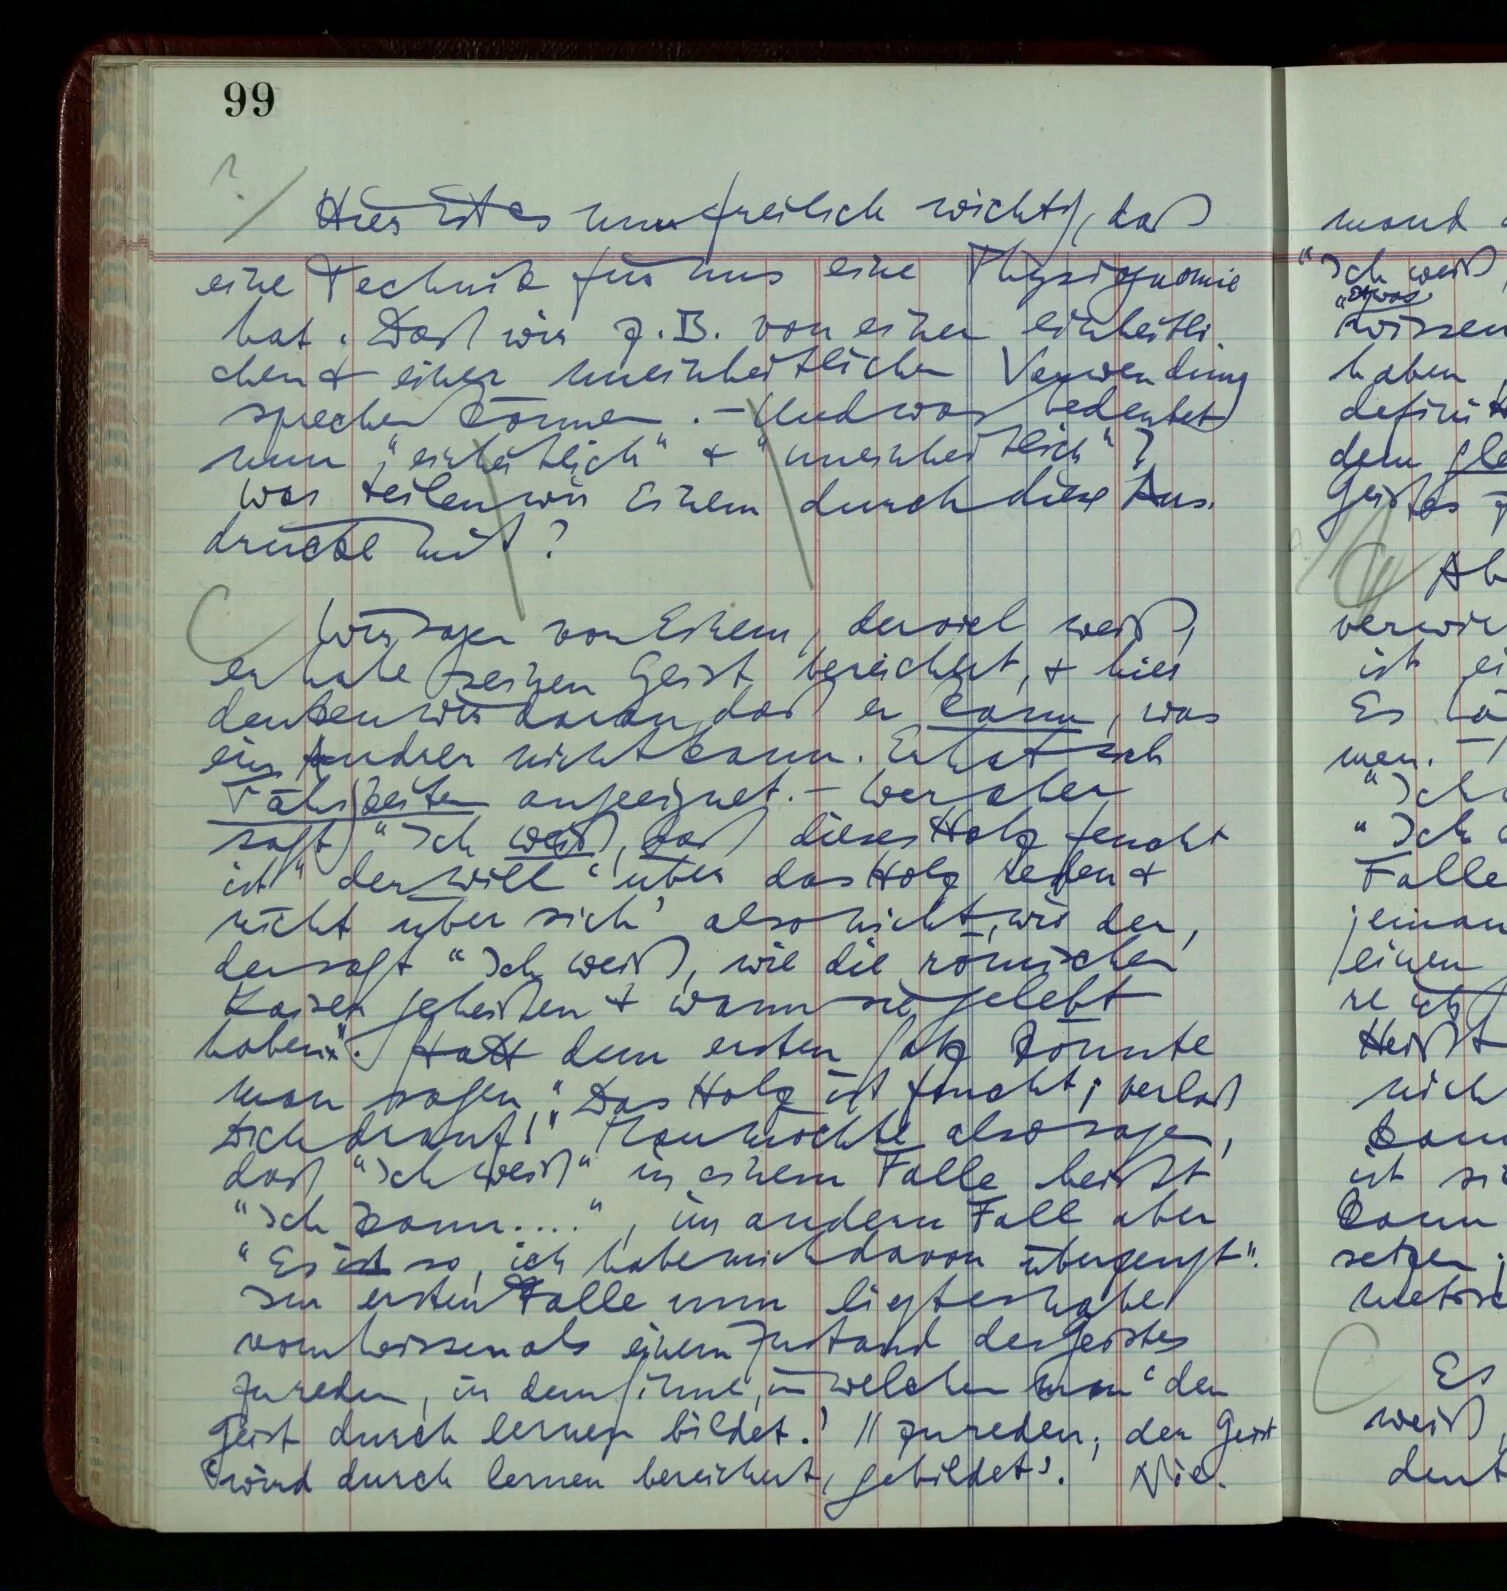 99
? /
Hier ist es nun freilich wichtig, daß
eine Technik für uns eine Physiognomie
hat. Daß wir z.B. von einer einheitli-
chen & einer uneinheitlichen Verwendung
sprechen können. – Und was bedeutet
nun „einheitlich“ & “uneinheitlich”?
Was teilen wir Einem durch diese Aus-
drücke mit?
Wir sagen von Einem, der viel weiß,
er habe seinen Geist bereichert, & hier
denken wir daran, daß er kann, was
ein Andrer nicht kann. Er hat sich
Fähigkeiten angeeignet. – Wer aber
sagt “Ich weiß, daß dieses Holz feucht
ist” der will ‘über das Holz reden &
nicht über sich’ also nicht, wie der,
der sagt “Ich weiß, wie die römischen
Kaiser geheißen & wann sie gelebt
haben”. Statt dem ersten Satz könnte
man sagen “Das Holz ist feucht; verlaß
Dich drauf!” Man möchte also sagen,
daß “Ich weiß” in einem Falle heißt
“Ich kann....”, im andern Fall aber
“Es ist so, ich habe mich davon überzeugt”.
Im ersten Falle nun liegt es nahe
vom Wissen als einem Zustand des Geistes
zu reden, in dem Sinne, in welchem man ‘den
Geist durch lernen bildet.’ // zu reden; der Geist
‘wird durch lernen bereichert, gebildet’. Nie-
mand
“Ich weiß,
“Etwas
wissen
haben
dem
Geistes
Ab
ist
Es
men. –
“Ich
“Ich
Falle
einen
Heißt
nich
ist
kann
setzen;
Es
weiß,